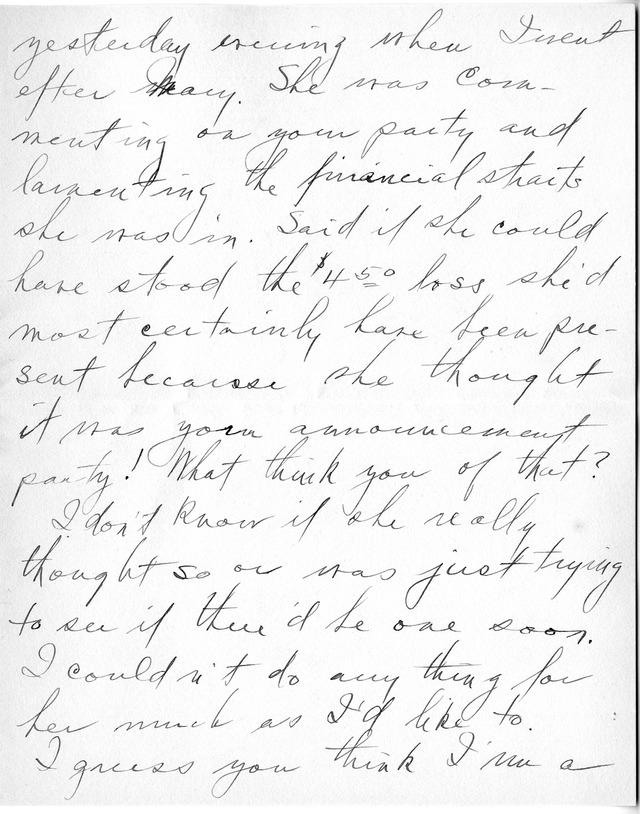 yesterday evening when I went
after Mary. She was Com-
menting on your party and
lamenting the financial straits
she was in. Said if she could
have stood the $4.50 loss she'd
most certainly have been pre-
sent because she thought
it was your announcement
party! What think you of that?
I don't know if she really
thought so or was just trying
to see if there'd be one soon.
I couldn't do any thing for
her much as I'd like to.
I guess you think I'm a